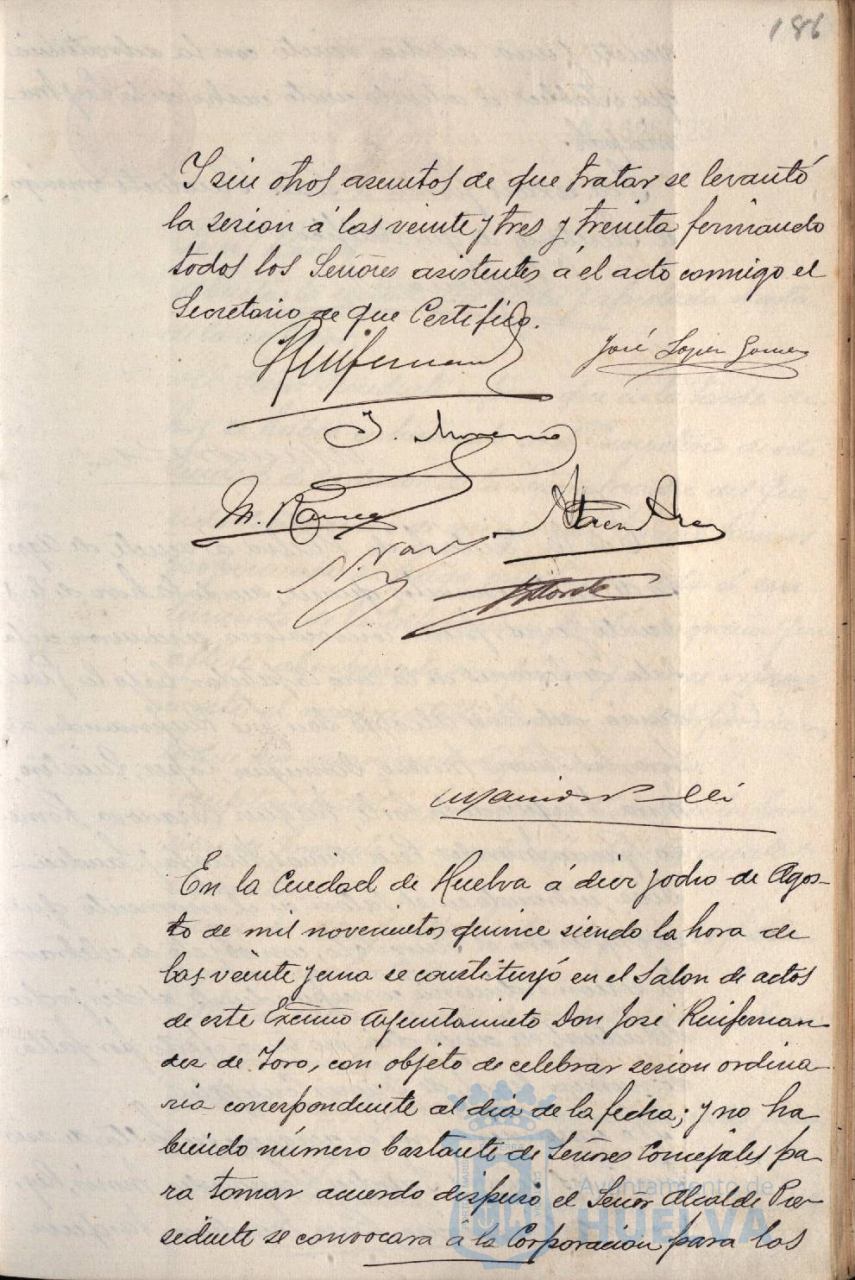 186
Y sin otros asuntos de que tratar se levantó
la sesion á las veinte y tres y treinta firmando
todos los Señores asistentes á el acto conmigo el
Secretario de que Certifico.
Ruifernand
José Lopez Gomez
J. Moreno
M. Ramos
En la Ciudad de Huelva á diez y ocho de Agos-
to de mil novecientos quince siendo la hora de
las veinte y una se constituyó en el Salon de actos
de este Excmo Ayuntamiento Don José Ruifernan-
dez de Toro, con objeto de celebrar sesion ordina-
ria correspondiente al dia de la fecha; y no ha-
biendo número bastante de Señores Concejales pa-
ra tomar acuerdo dispuso el Señor Alcalde Pre-
sidente se convocara á la Corporacion para los
Ayuntamiento de
HUELVA